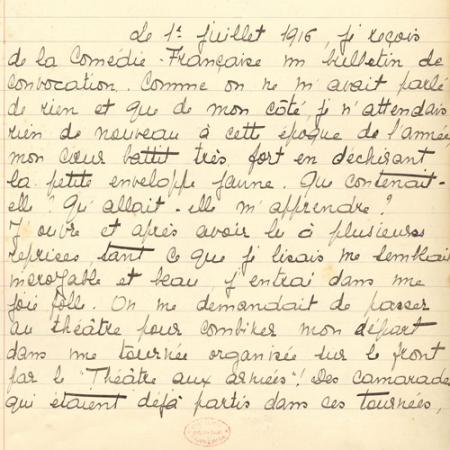 Le 1er Juillet 1916, je reçois
de la Comédie-Française un bulletin de
convocation. Comme on ne m'avait parlé
de rien et que de mon côté je n'attendais
rien de nouveau à cette époque de l'année,
mon cœur battit très fort en déchirant
la petite enveloppe jaune. Que contenait-
elle? Qu'allait-elle m'apprendre?
J'ouvre et après avoir lu à plusieurs
reprises, tant ce que je lisais me semblait
incroyable et beau, j'entrai dans une
joie folle. On me demandait de passer
au théâtre pour combiner mon départ
dans une tournée organisée sur le front
par le "Théâtre aux armées"! Des camarades
qui étaient déjà partis dans ces tournées,